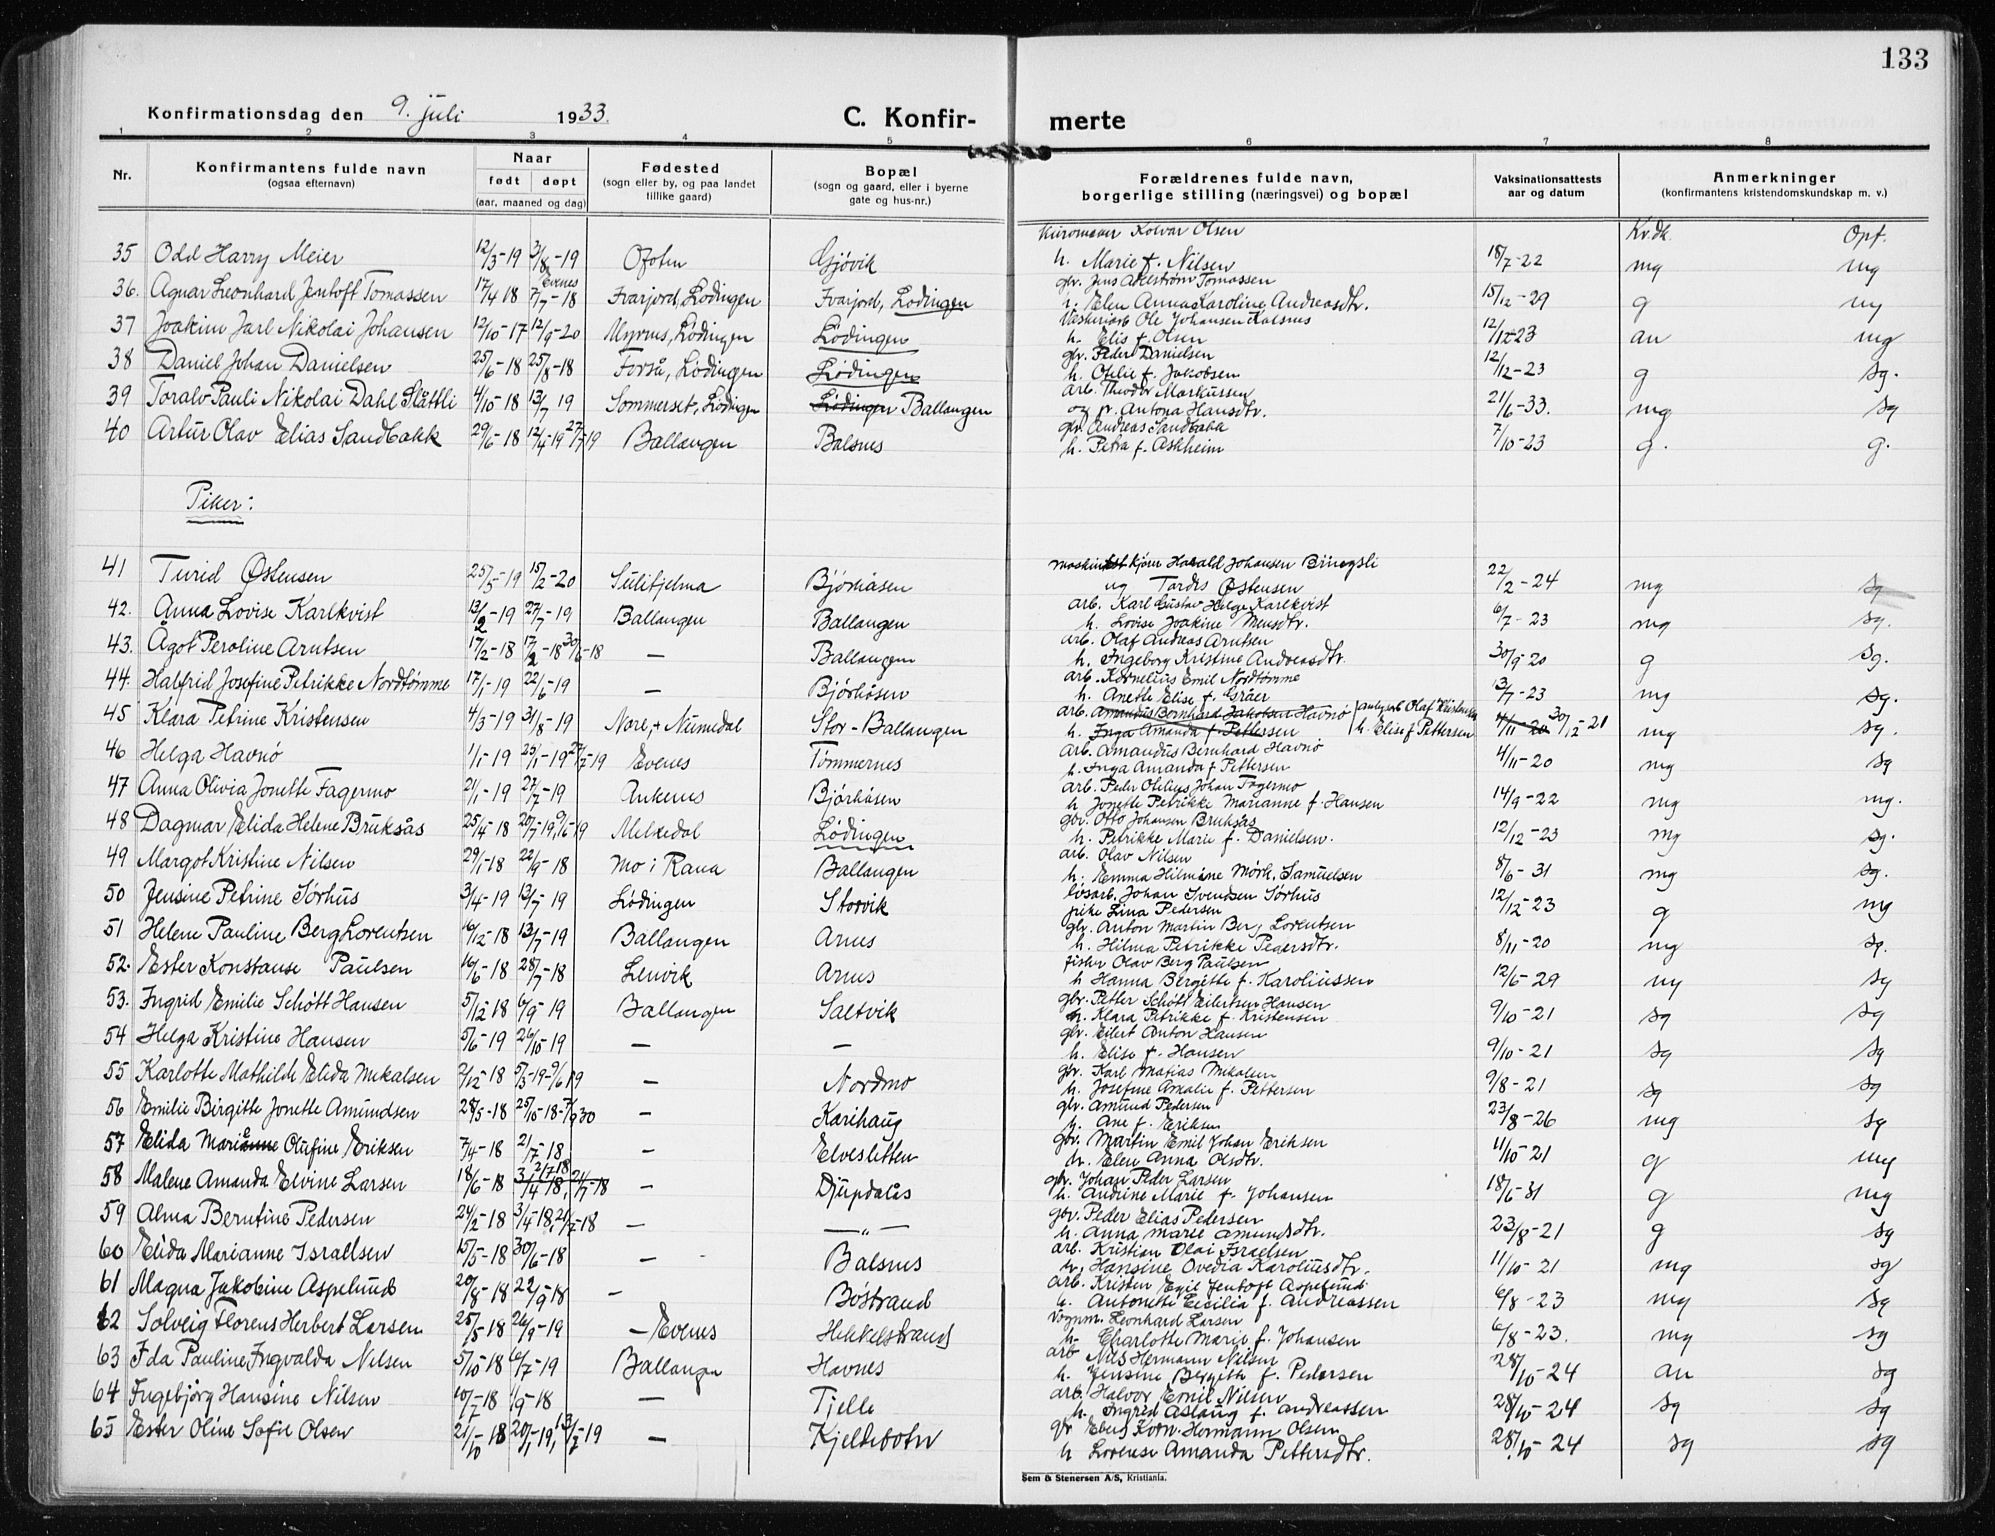 133
Konfirmationsdag den 9. juli 1933.
C. Konfirmerte
1 2 3 4 5 6 7 8
Nr. Konfirmantens fulde navn (ogsaa efternavn) Naar født døpt (aar, maaned og dag) Fødested (sogn eller by, og paa landet tillike gaard) Bopæl (sogn og gaard, eller i byerne gate og hus-nr.) Forældrenes fulde navn, borgerlige stilling (næringsvei) og bopæl Vaksinationsattests aar og datum Anmerkninger (konfirmantens kristendomskundskap m. v.)
Kolvar Olsen Kr.dk. Opf.
35 Odd Harry Meier 12/3-19 3/8-19 Ofoten Gjøvik h. Marie f. Nilsen 18/7-22 mg mg
Evenes gbr. Jens Akelstrøm Tomassen
36. Agnar Leonhard Jentoft Tomassen 17/4 18 7/7-18 Lødingen Lødingen h. Elen Anna Karoline Andreasdtr. 15/12-29 g mg
Ole Johansen
37 Joakim Jarl Nikolai Johansen 12/10-17 12/9-20 Myrnes, Lødingen Lødingen h. Elis f. Olsen 12/12-23 an mg
gbr. Peder Danielsen
38 Daniel Johan Danielsen 25/6-18 25/8-18 Forså, Lødingen Lødingen h. Otelie f. Jakobsen 12/12-23 g sg.
arb. Theodor Markussen
39 Toralv Pauli Nikolai Dahl Slåttli 4/10-18 13/7 19 Sommerset, Lødingen Lødingen Ballangen og pr. Antona Hansdtr. 21/6-33. mg sg
gbr. Andreas Sandbakk
40 Artur Olav Elias Sandbakk 29/6-18 12/4-19 27/7-19 Ballangen Balsnes h. Petra f. Askheim 7/10-23 g. g.
Piker:
Harald Johansen
41 Turid Østensen 25/5-19 15/2-20 Sulitjelma Bjørkåsen og Tordis Østensen 22/2-24 mg sg
arb. Karl Gustav Helge Karlkvist
42. Anna Lovise Karlkvist 13/2-19 27/7-19 Ballangen Ballangen h. Lovise Joakine Mensdtr. 6/7-23 mg sg.
arb. Olaf Andreas Arntsen
43. Ågot Peroline Arntsen 17/2-18 17/2-18 30/6-18 — Ballangen h. Ingeborg Kristine Andreasdtr. 30/9-20 g sg.
arb. Kornelius Emil Nordtømme
44. Halfrid Josefine Petrikke Nordtømme 17/1-19 22/6-19 — Bjørkåsen h. Anette Elise f. Gråer 13/7-23 mg sg.
arb. Amandus Bernhard Jakobsen Havnø Olaf Kristensen
45 Klara Petrine Kristensen 4/3-19 31/8-19 Nore, Numedal Stor-Ballangen h. Inga Amanda f. Pettersen h. Elise f Pettersen 4/11-20 30/12-21 mg sg.
arb. Amandus Bernhard Havnø
46 Helga Havnø 1/1-19 25/1-19 27/7-19 Evenes Tømmernes h. Inga Amanda f. Pettersen 4/11-20 mg sg
arb. Peder Otelius Johan Fagermo
47 Anna Olivia Jonette Fagermo 21/1-19 27/7-19 Ankenes Bjørkåsen h Jonette Petrikke Marianne f. Hansen 14/9-22 mg mg.
gbr. Otto Johansen Bruksås
48 Dagmar Elida Helene Bruksås 25/4-18 20/7-19, 9/6-19 Melkedal Lødingen h. Petrikke Marie f. Danielsen. 12/12-23 mg sg.
arb. Olav Nilsen
49 Margot Kristine Nilsen 29/1-18 22/9-18 Mo i Rana Ballangen h. Emma Hilmine Mørk, Samuelsen 8/6-31 mg sg.
løsarb. Johan Svendsen Sørhus
50 Jensine Petrine Sørhus 3/4-19 13/7-19 Lødingen Storvik pike Lina Pedersen 12/12-23 g mg
gbr. Anton Martin Berg Lorentsen
51 Helene Pauline Berg Lorentsen 16/12-18 13/7-19 Ballangen Arnes h. Hilma Petrikke Pedersdtr. 8/11-20 mg sg.
fisker Olav Berg Paulsen
52. Ester Konstanse Paulsen 16/6-18 28/7-18 Lenvik Arnes h Hanna Bergitte f. Karoliussen 12/6-29 mg sg
gbr. Petter Schøtt Eilertsen Hansen
53. Ingrid Emilie Schøtt Hansen 5/12 18 6/9-19 Ballangen Saltvik h. Klara Petrikke f. Kristensen 9/10-21 sg sg
gbr. Eilert Anton Hansen
54 Helga Kristine Hansen 5/6-19 26/10-19 — — h. Elise f. Hansen 9/10-21 sg sg
gbr. Karl Matias Mikalsen
55 Karlotte Mathilde Elida Mikalsen 2/12-18 5/3-19-9/6 19 — Nordmo h. Josefine Amalie f. Pettersen 9/8-21 sg sg
gbr. Amund Pedersen
56 Emilie Birgitte Jonette Amundsen 28/5-18 25/10-18-7/9 30 — Karihaug h. Ane f. Eriksen 23/8-26 mg sg
gbr. Martin Emil Johan Eriksen
57 Elida Marianne Olufine Eriksen 7/4-18 21/7-18 — Elvesletten h. Elen Anna Olsdtr. 11/10-21 g mg
21/7 18 gbr. Johan Peder Larsen
58 Malene Amanda Elvine Larsen 18/6-18 3/4 18, 21/7-18 — Djupdalås h. Andrine Marie f. Johansen 18/6-31 g mg
gbr. Peder Elias Pedersen
59 Alma Berntine Pedersen 24/2-18 3/4-18, 21/7-18 — —„— h. Anna Marie Amundsdtr. 23/8-21 g sg
arb. Kristian Olai Israelsen
60 Elida Marianne Israelsen 15/5-18 30/6-18 — Balsnes h. Hansine Ovedia Karoliusdtr. 11/10-21 mg sg
arb. Kristen Egil Jentoft Aspelund
61 Magna Jakobine Aspelund 20/8-18 22/9-18 — Bøstrand h. Antonette Cecilia f. Andreassen 6/8-23 mg sg
Vognm. Leonhard Larsen
62 Solveig Florens Herbert Larsen 25/5-18 26/9-19 — Evenes Hekkelstrand h. Charlotte Marie f. Johansen 6/8-23. mg sg
arb Nils Hermann Nilsen
63 Ida Pauline Ingvalda Nilsen 5/10-18 6/7-19 Ballangen Havnes h. Jensine Bergitte f. Pedersen 28/10-24 an sg
arb. Halvor Emil Nilsen
64 Ingebjørg Hansine Nilsen 10/7-18 1/9-18 — Tjelle h. Ingrid Aslaug f. Andreassen 28/10-24 sg sg
gbr Hermann Olsen
65 Ester Oline Sofie Olsen 21/10-18 20/1-19, 13/7-19 — Kjeldebotn h Lorense Amanda Pettersdtr. 28/10-24 sg sg
Sem & Stenersen A/S, Kristiania.